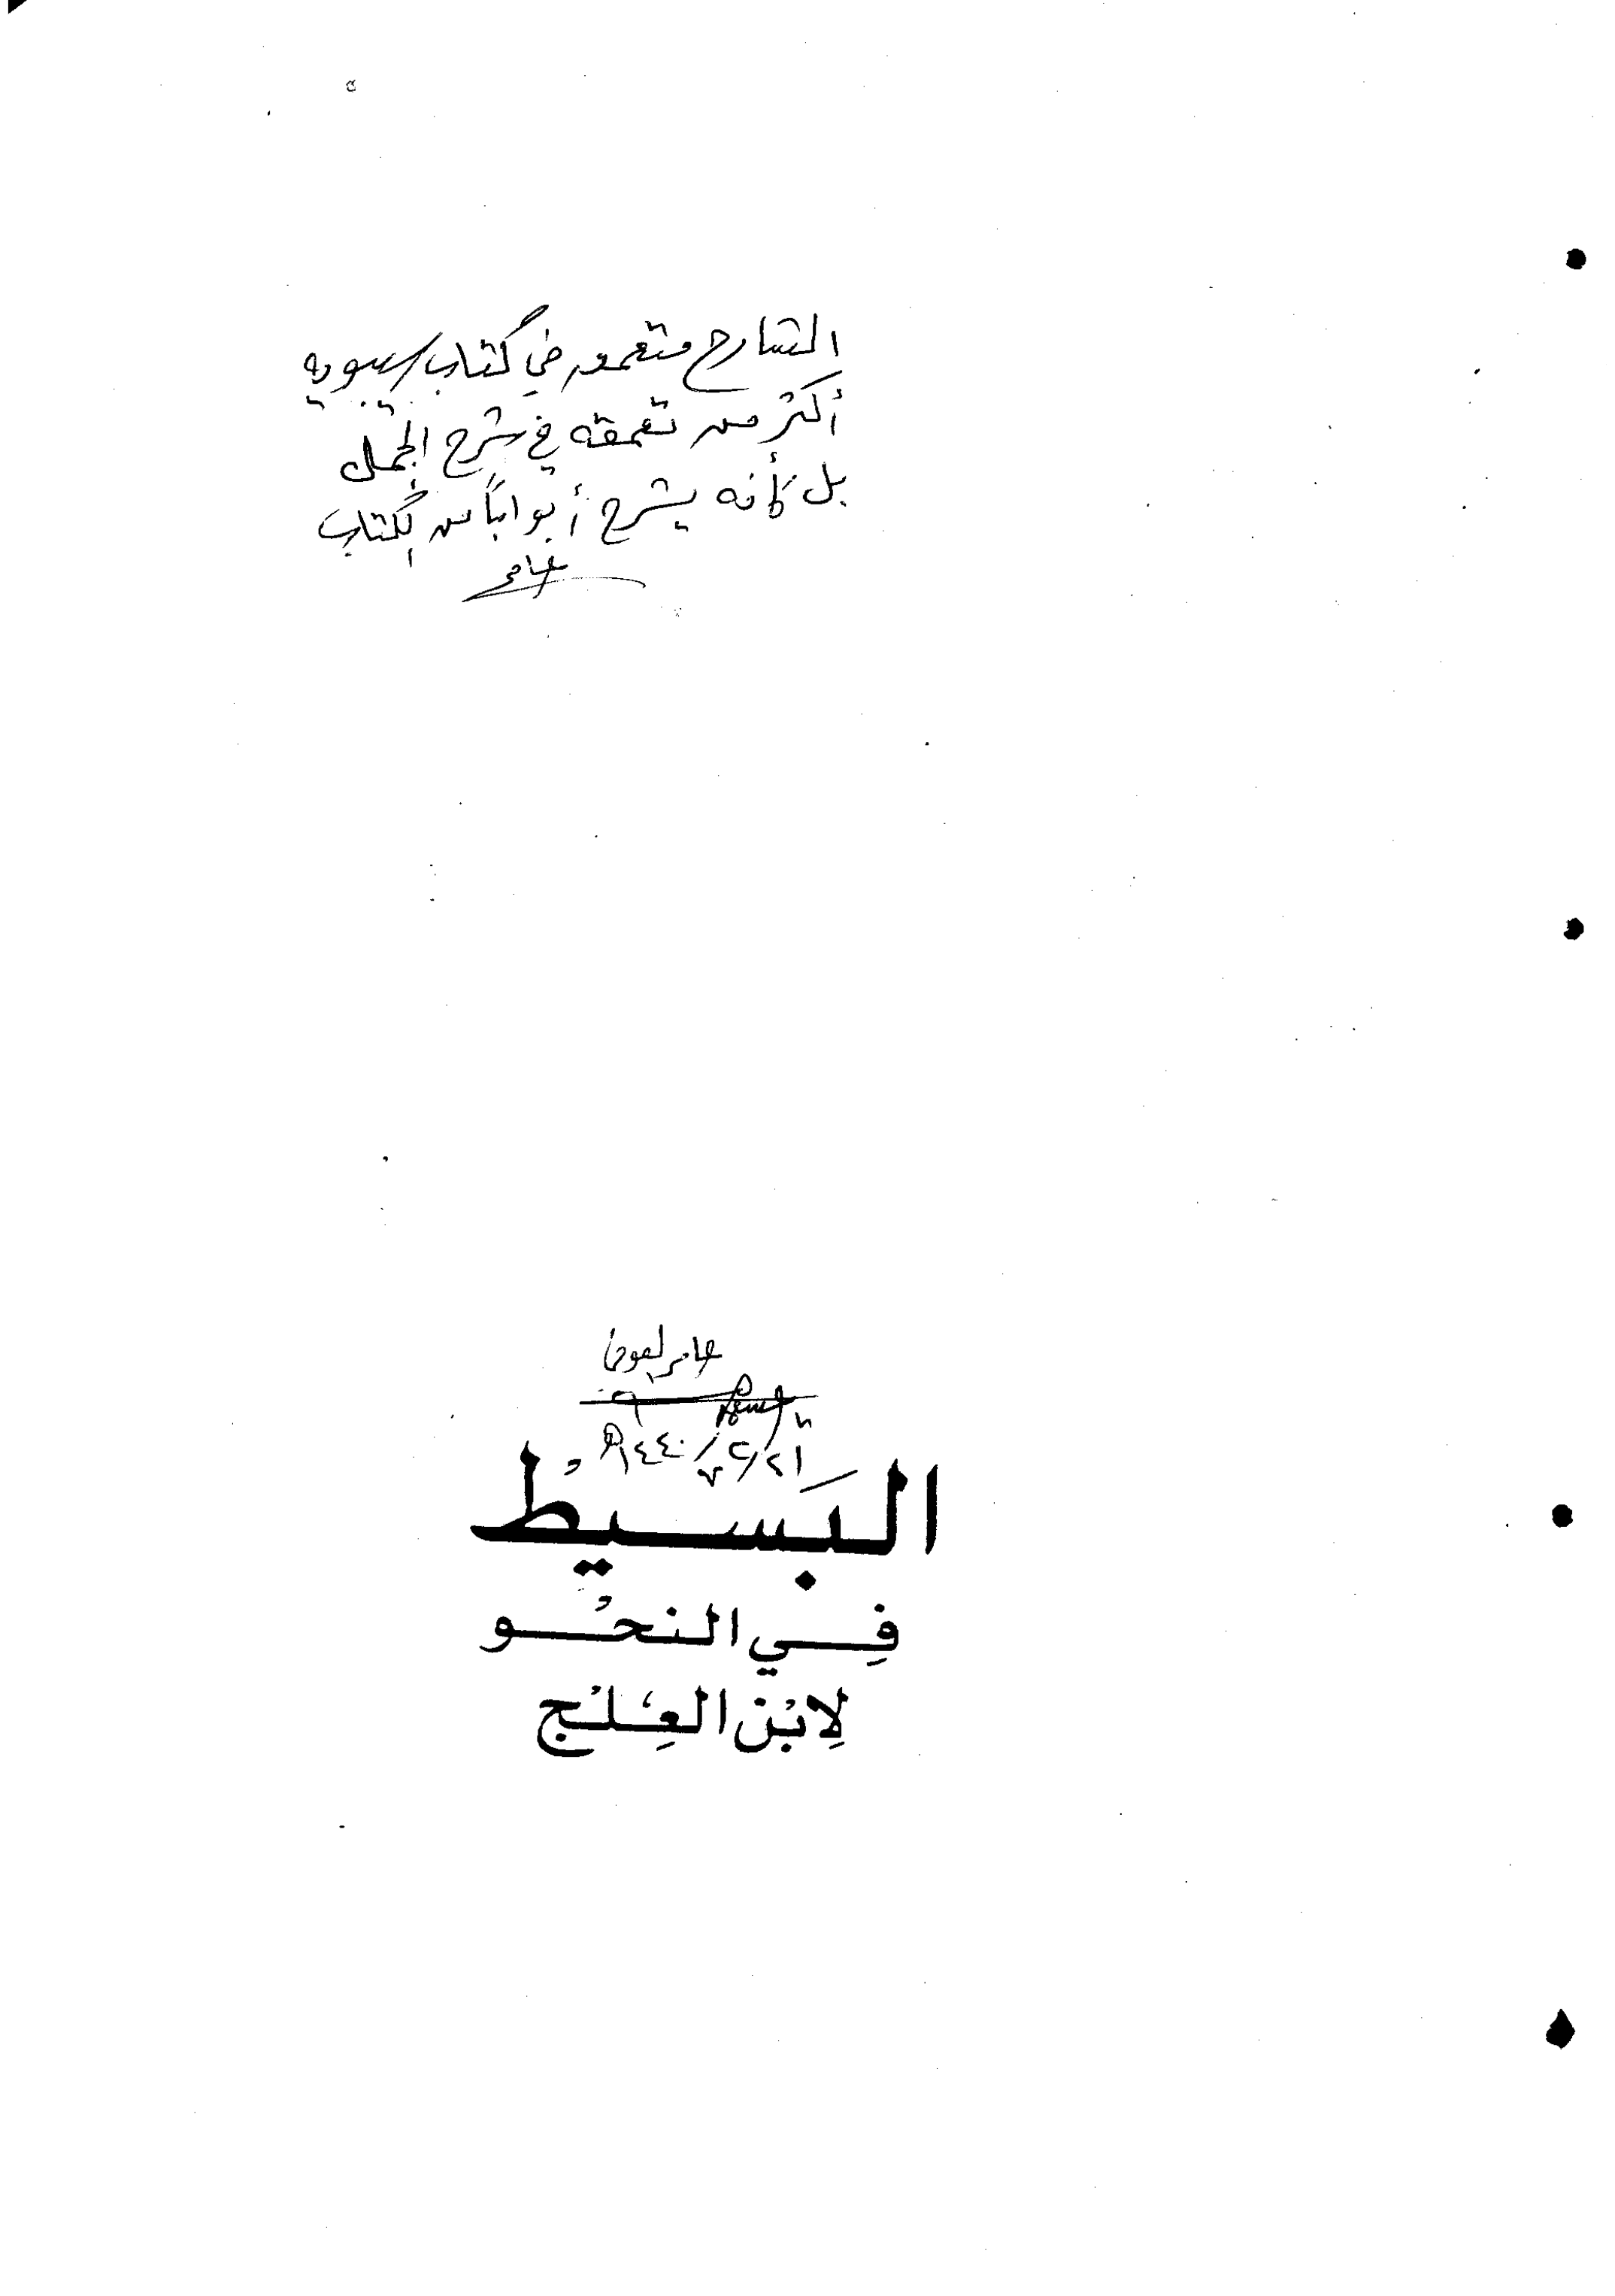 الشارح متعمق في كتاب سيبويه
أكثر من تعمقه في شرح الجمل
بل كأنه يشرح أبواباً من الكتاب
عامر
عامر
١٤٤٠هـ
البَسيْط
فِي النحْو
لِابْن العِلْج